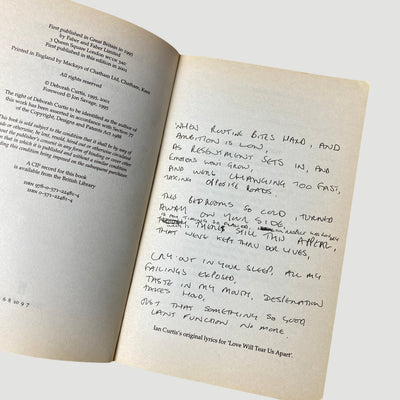 First published in Great Britain in 1995
by Faber and Faber Limited
3 Queen Square London WC1N 3AU
First published in this edition in 2001
Printed in England by Mackays of Chatham Ltd, Chatham, Kent
All rights reserved
© Deborah Curtis, 1995, 2001
Foreword © Jon Savage, 1995
The right of Deborah Curtis to be identified as the author of
this work has been asserted in accordance with Section 77
of the Copyright, Designs and Patents Act 1988
This book is sold subject to the condition that it shall not, by way of
trade or otherwise, be lent, resold, hired out or otherwise circulated
without the publisher's prior consent in any form of binding or cover other
than that in which it is published and without a similar condition
including this condition being imposed on the subsequent purchaser
A CIP record for this book
is available from the British Library
6 8 10 9 7
WHEN ROUTINE BITES HARD, AND
AMBITION IS LOW,
AS RESENTMENT SETS IN, AND
EMOTIONS WON'T GROW,
AND WERE CHANGING TOO FAST,
TAKING OPPOSITE ROADS.
THIS BEDROOMS SO COLD, TURNED
AWAY ON YOUR SIDE,
IS MY TIMING SO FLAWED,
THERES STILL THIS APPEAL,
THAT WEVE KEPT THRU OUR LIVES,
CRY OUT IN YOUR SLEEP, ALL MY
FAILINGS EXPOSED,
TASTE IN MY MOUTH, DESPERATION
TAKES HOLD,
JUST THAT SOMETHING SO GOOD
CANT FUNCTION NO MORE.
Ian Curtis's original lyrics for 'Love Will Tear Us Apart'.